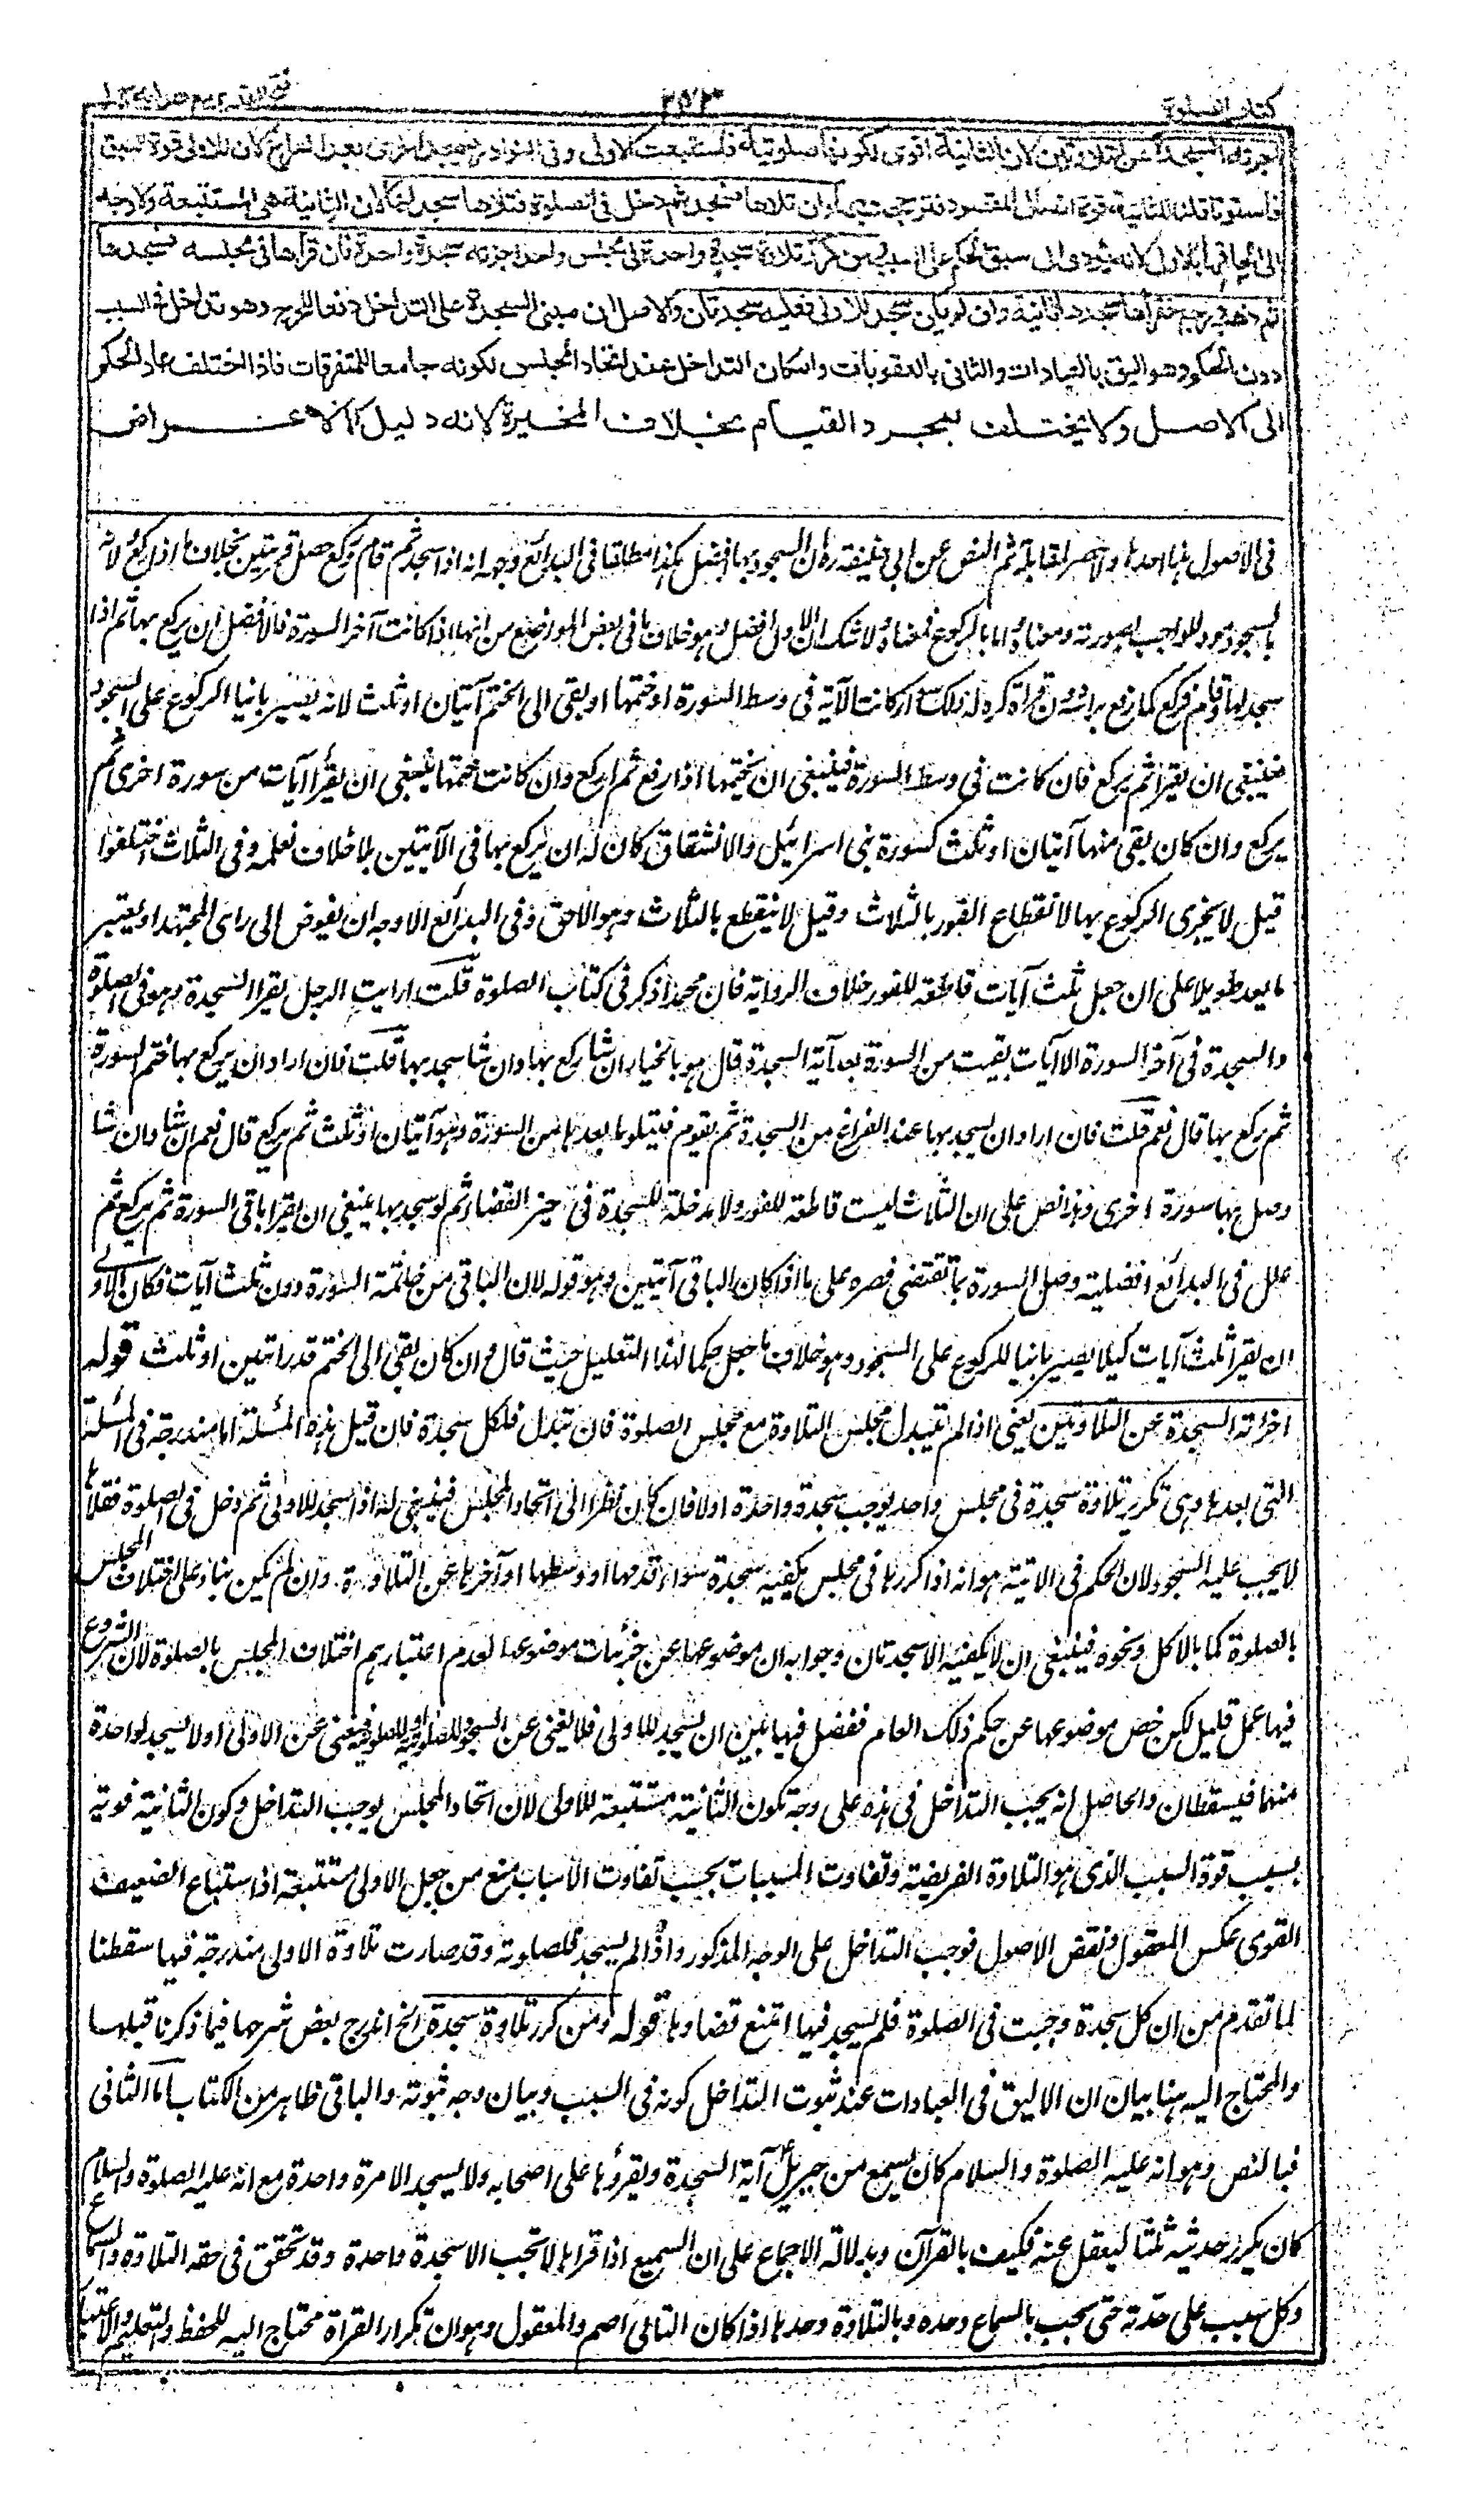 كتاب الصلوة
٢٥٣
فتح القدير مع هداية ج ١
اجزته السجدة عن التلاوتين لان الثانية اقوى لكونها صلوتية فاستتبعت الاولى وفى النوادر يسجد اخرى بعد الفراغ لان للاولى قوة السبق
فاستويا قلنا للثانية قوة اتصال المقصود فترجحت بها وان تلاها فسجد ثم دخل فى الصلوة فتلاها سجد لها لان الثانية هى المستتبعة ولا وجه
الى الحاقها بالاولى لانه يؤدى الى سبق الحكم على السبب ومن كرر تلاوة سجدة واحدة فى مجلس واحد اجزته سجدة واحدة فان قرأها فى مجلسه فسجدها
ثم ذهب ورجع فقرأها سجدها ثانية وان لم يكن سجد للاولى فعليه سجدتان والاصل ان مبنى السجدة على التداخل دفعا للحرج وهو تداخل فى السبب
دون الحكم وهو اليق بالعبادات والثانى بالعقوبات وامكان التداخل عند اتحاد المجلس لكونه جامعا للمتفرقات فاذا اختلف عاد الحكم
الى الاصل ولا يختلف بمجرد القيام بخلاف المخيرة لانه دليل الاعراض
فى الاصول بناء احدها ولا حصر لمقابله ثم النص عن ابى حنيفة رح ان السجود بها افضل هكذا مطلقا فى البدائع وجهه انه اذا سجد ثم قام وركع حصل قربتين بخلاف ما اذا ركع ولانه
بالسجود مؤد للواجب بصورته ومعناه واما بالركوع فبمعناه ولا شك ان الاول افضل وهو خلاف ما فى بعض المواضع من انها اذا كانت آخر السورة فالافضل ان يركع بها ثم اذا
سجد لها وقام فركع كما رفع رأسه دون قراءة كره له ذلك سواء كانت الآية فى وسط السورة او ختمها او بقى الى الختم آيتان او ثلث لانه يصير بانيا الركوع على السجود
فينبغى ان يقرأ ثم يركع فان كانت فى وسط السورة فينبغى ان يختمها اذا رفع ثم يركع وان كانت ختمها ينبغى ان يقرأ آيات من سورة اخرى ثم
يركع وان كان بقى منها آيتان او ثلث كسورة بنى اسرائيل والانشقاق كان له ان يركع بها فى الآيتين بلا خلاف نعلمه وفى الثلاث اختلفوا
قيل لا يجزى الركوع بها لانقطاع الفور بالثلاث وقيل لا ينقطع بالثلاث وهو الاحق وفى البدائع الاوجه ان يفوض الى راى المجتهد او يعتبر
ما يعد طويلا على ان جعل ثلث آيات قاطعة للفور خلاف الرواية فان محمدا ذكر فى كتاب الصلوة قلت ارايت الرجل يقرا السجدة وهو فى الصلوة
والسجدة فى آخر السورة الا آيات بقيت من السورة بعد آية السجدة قال هو بالخيار ان شا ركع بها وان شا سجد بها قلت فان اراد ان يركع بها ختم السورة
ثم ركع بها قال نعم قلت فان اراد ان يسجد بها عند الفراغ من السجدة ثم يقوم فيتلو ما بعدها من السورة وهو آيتان او ثلث ثم يركع قال نعم ان شا وان شا
وصل بها سورة اخرى وهذا نص على ان الثلاث ليست قاطعة للفور ولا مدخلة للسجدة فى حيز القضاء ثم لو سجد بها ينبغى ان يقرا باقى السورة ثم يركع ثم
علل فى البدائع افضلية وصل السورة بما تقتضى قصره على ما اذا كان الباقى آيتين وهو قوله لان الباقى من خاتمة السورة دون ثلث آيات فكان الاولى
ان يقرأ ثلث آيات كيلا يصير بانيا للركوع على السجود وهو خلاف ما جعل حكما لهذا التعليل حيث قال وان كان بقى الى الختم قدر آيتين او ثلث قوله
اجزاته السجدة عن التلاوتين يعنى اذا لم يتبدل مجلس التلاوة مع مجلس الصلوة فان تبدل فلكل سجدة فان قيل هذه المسئلة اما مندرجة فى المسئلة
التى بعدها وهى تكرير تلاوة سجدة فى مجلس واحد يوجب سجدة واحدة اولا فان كان نظرا الى اتحاد المجلس فينبغى له اذا سجد للاولى ثم دخل فى الصلوة فتلاها
لا يجب عليه السجود لان الحكم فى الآتية هو انه اذا كررها فى مجلس يكفيه سجدة سواء قدمها او وسطها او آخرها عن التلاوة وان لم يكن بناء على اختلاف المجلس
بالصلوة كما بالاكل ونحوه فينبغى ان لا يكفيه الا سجدتان وجوابه ان موضوعها عن جزئيات موضوعها لعدم اعتبارهم اختلاف المجلس بالصلوة لان الشروع
فيها عمل قليل لكن خص موضوعها عن حكم ذلك العام ففصل فيها بين ان يسجد للاولى فلا يغنى عن السجود للصلوتية او للصلوتية فيغنى عن الاولى اولا يسجد لواحدة
منهما فيسقطان والحاصل انه يجب التداخل فى هذه على وجه تكون الثانية مستتبعة للاولى لان اتحاد المجلس يوجب التداخل وكون الثانية قوية
بسبب قوة السبب الذى هو التلاوة الفريضة وتفاوت المسببات بحسب تفاوت الاسباب منع من جعل الاولى مستتبعة اذ استتباع الضعيف
القوى عكس المعقول ونقض الاصول فوجب التداخل على الوجه المذكور واذا لم يسجد للصلوتية وقد صارت تلاوة الاولى مندرجة فيها سقطتا
لما تقدم من ان كل سجدة وجبت فى الصلوة فلم يسجد فيها امتنع قضاؤها قوله ومن كرر تلاوة سجدة الخ اندرج بعض شرحها فيما ذكرنا قبلها
والمحتاج اليه هنا بيان ان الاليق فى العبادات عند ثبوت التداخل كونه فى السبب وبيان وجه ثبوته والباقى ظاهر من الكتاب اما الثانى
فبالنص وهو انه عليه الصلوة والسلام كان يسمع من جبريل آية السجدة ويقرؤها على اصحابه ولا يسجد الا مرة واحدة مع انه عليه الصلوة والسلام
كان يكرر حديثه ثلثا ليعقل عنه فكيف بالقرآن وبدلالة الاجماع على ان السميع اذا قراها لا تجب الا سجدة واحدة وقد تحقق فى حقه التلاوة والسماع
وكل سبب على حدته حتى يجب بالسماع وحده وبالتلاوة وحدها اذا كان التالى اصم والمعقول وهو ان تكرار القراة محتاج اليه للحفظ والتعليم والاعتبار